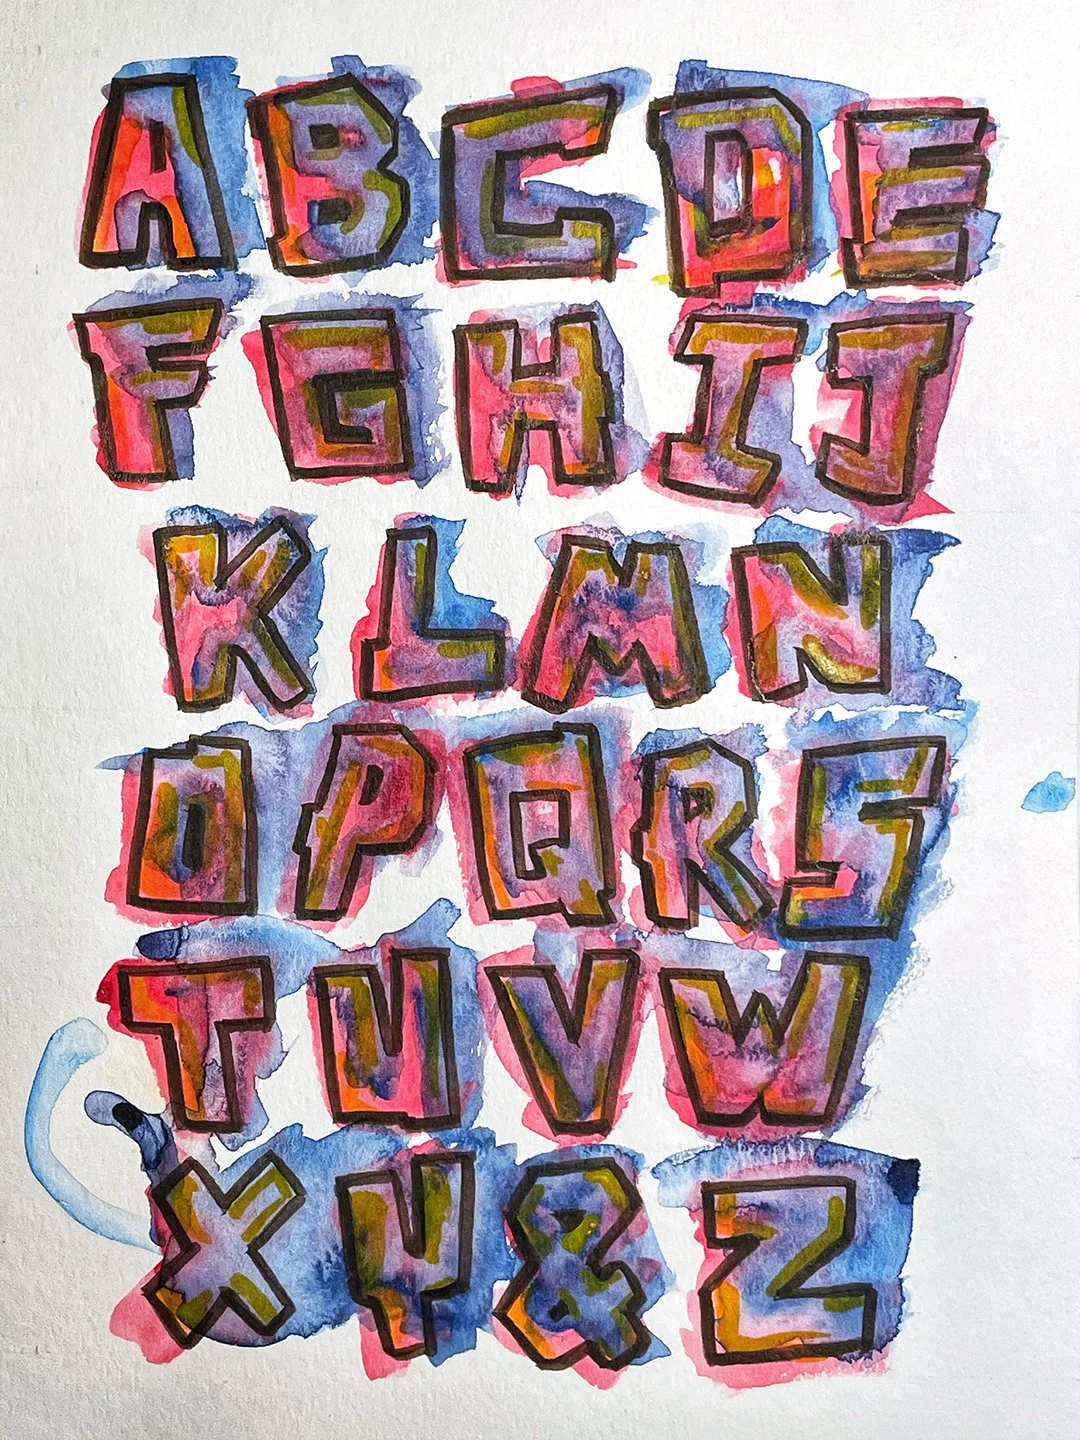 ABCDE
FGHIJ
KLMN
OPQRS
TUVW
XY&Z